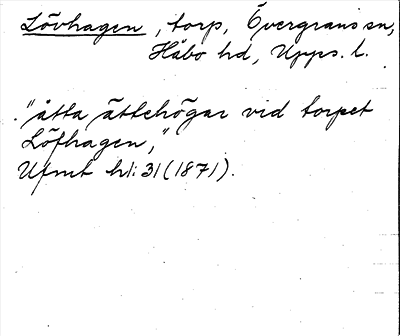 Lövhagen, torp, Övergrans sn,
Håbo hd, Upps. l.
"åtta ättehögar vid torpet
Löfhagen,"
Ufmt h1: 31 (1871).